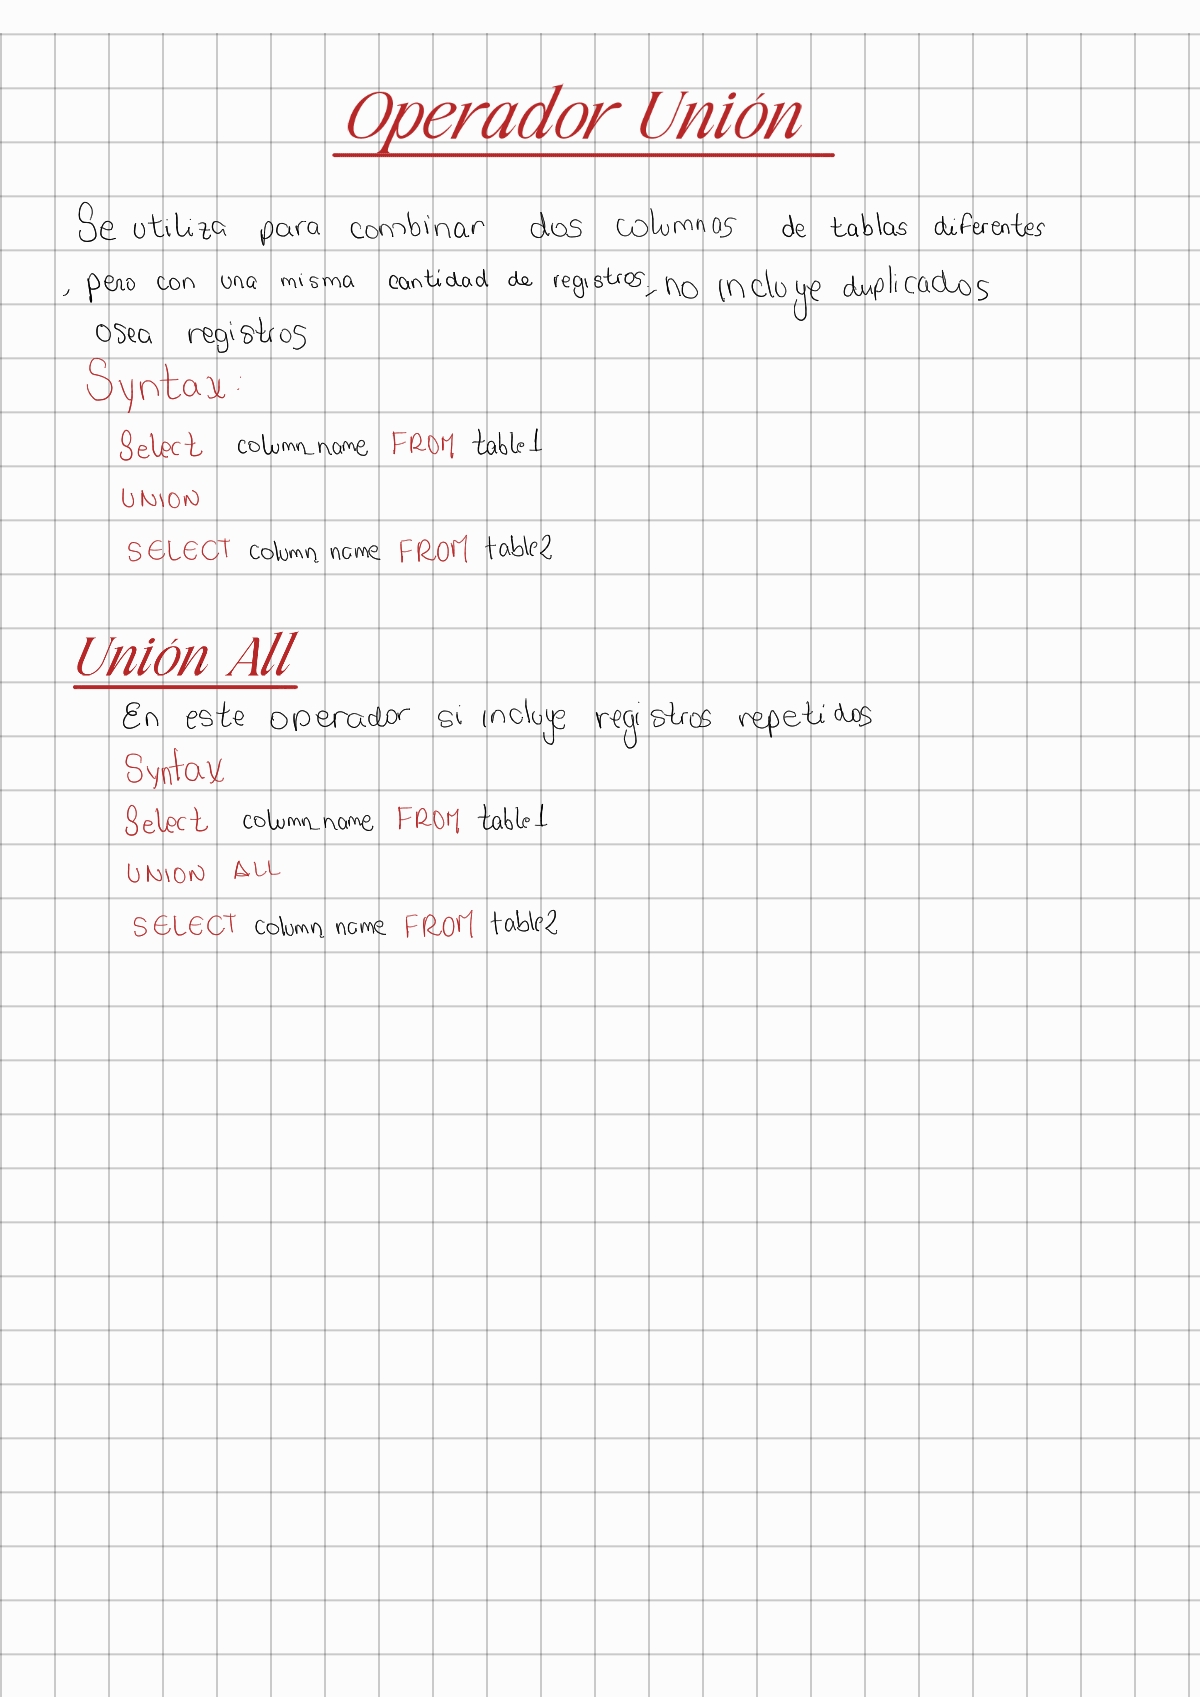 Operador Unión
Se utiliza para combinar dos columnas de tablas diferentes
, pero con una misma cantidad de registros, no incluye duplicados
osea registros
Syntax:
Select column_name FROM table1
UNION
SELECT column_name FROM table2
Unión All
En este operador si incluye registros repetidos
Syntax
Select column_name FROM table1
UNION ALL
SELECT column_name FROM table2